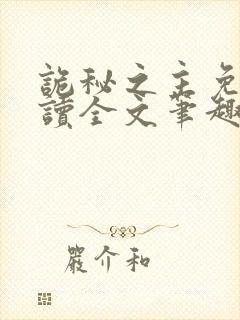 詭秘之主免
讀全文筆趣
嚴介和